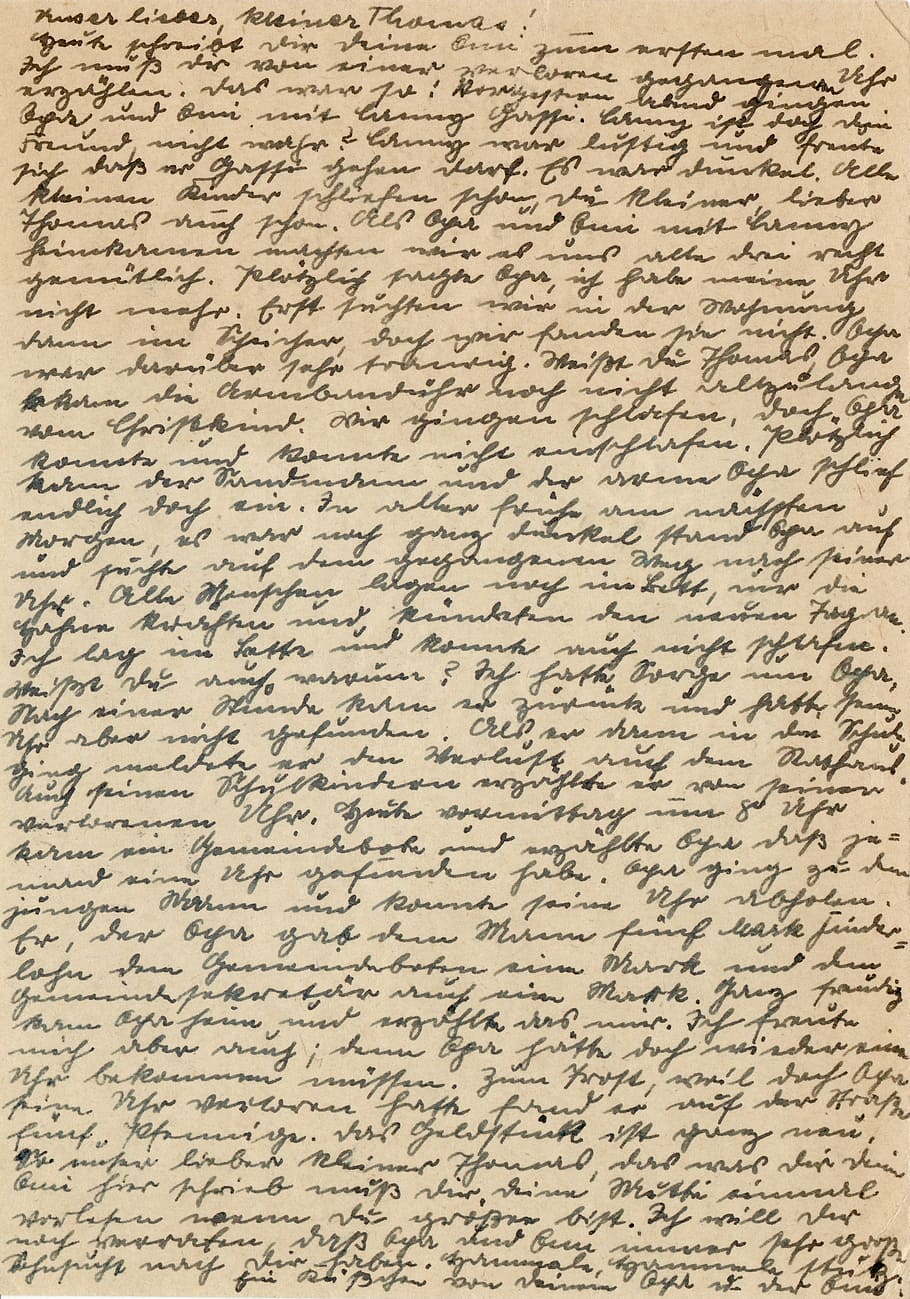 Unser lieber, kleiner Thomas!
Heute schreibt Dir deine Omi zum ersten mal.
Ich muß dir von einer verloren gegangenen Uhr
erzählen. Das war so: Vorgestern abend gingen
Opa und Omi mit Lanny Gassi. Lanny ist doch dein
Freund, nicht wahr? Lanny war lustig und freute
sich daß er Gassi gehen darf. Es war dunkel. Alle
kleinen Kinder schliefen schon, du kleiner, lieber
Thomas auch schon. Als Opa und Omi mit Lanny
heimkamen machten wir es uns alle drei recht
gemütlich. Plötzlich sagte Opa, ich habe meine Uhr
nicht mehr. Erst suchten wir in der Wohnung
dann im Speicher, doch wir fanden sie nicht. Opa
war darüber sehr traurig. Weißt du Thomas, Opa
bekam die Armbanduhr noch nicht allzulange
vom Christkind. Wir gingen schlafen, doch Opa
konnte und konnte nicht einschlafen. Plötzlich
kam der Sandmann und der arme Opa schlief
endlich doch ein. In aller frühe am nächsten
Morgen, es war noch ganz dunkel stand Opa auf
und suchte auf dem gegangenen Weg nach seiner
Uhr. Alle Menschen lagen noch im Bett, nur die
Hähne krähten und kündeten den neuen Tag an.
Ich lag im Bette und konnte auch nicht schlafen.
Weißt Du auch warum? Ich hatte Sorge um Opa.
Nach einer Stunde kam er zurück und hatte seine
Uhr aber nicht gefunden. Als er dann in die Schule
ging meldete er den Verlust auf dem Rathaus.
Auch seinen Schulkindern erzählte er von seiner
verlorenen Uhr. Heute vormittag um 8 Uhr
kam ein Gemeindebote und erzählte Opa daß je=
mand eine Uhr gefunden habe. Opa ging zu dem
jungen Mann und konnte seine Uhr abholen.
Er, der Opa gab dem Mann fünf Mark Finder=
lohn dem Gemeindeboten eine Mark und dem
Gemeindesekretär auch eine Mark. Ganz freudig
kam Opa heim und erzählte das mir. Ich freute
mich aber auch; denn Opa hätte doch wieder eine
Uhr bekommen müssen. Zum Trost, weil doch Opa
seine Uhr verloren hatte fand er auf der Straße
fünf Pfennige. Das Geldstück ist ganz neu.
So unser lieber kleiner Thomas, das was dir deine
Omi hier schrieb muß dir deine Mutti einmal
vorlesen wenn du größer bist. Ich will dir
noch verraten, daß Opa und Omi immer sehr große
Sehnsucht nach Dir haben. Hammele, Hammele
Ein Küßchen von deinem Opa u. der Omi.